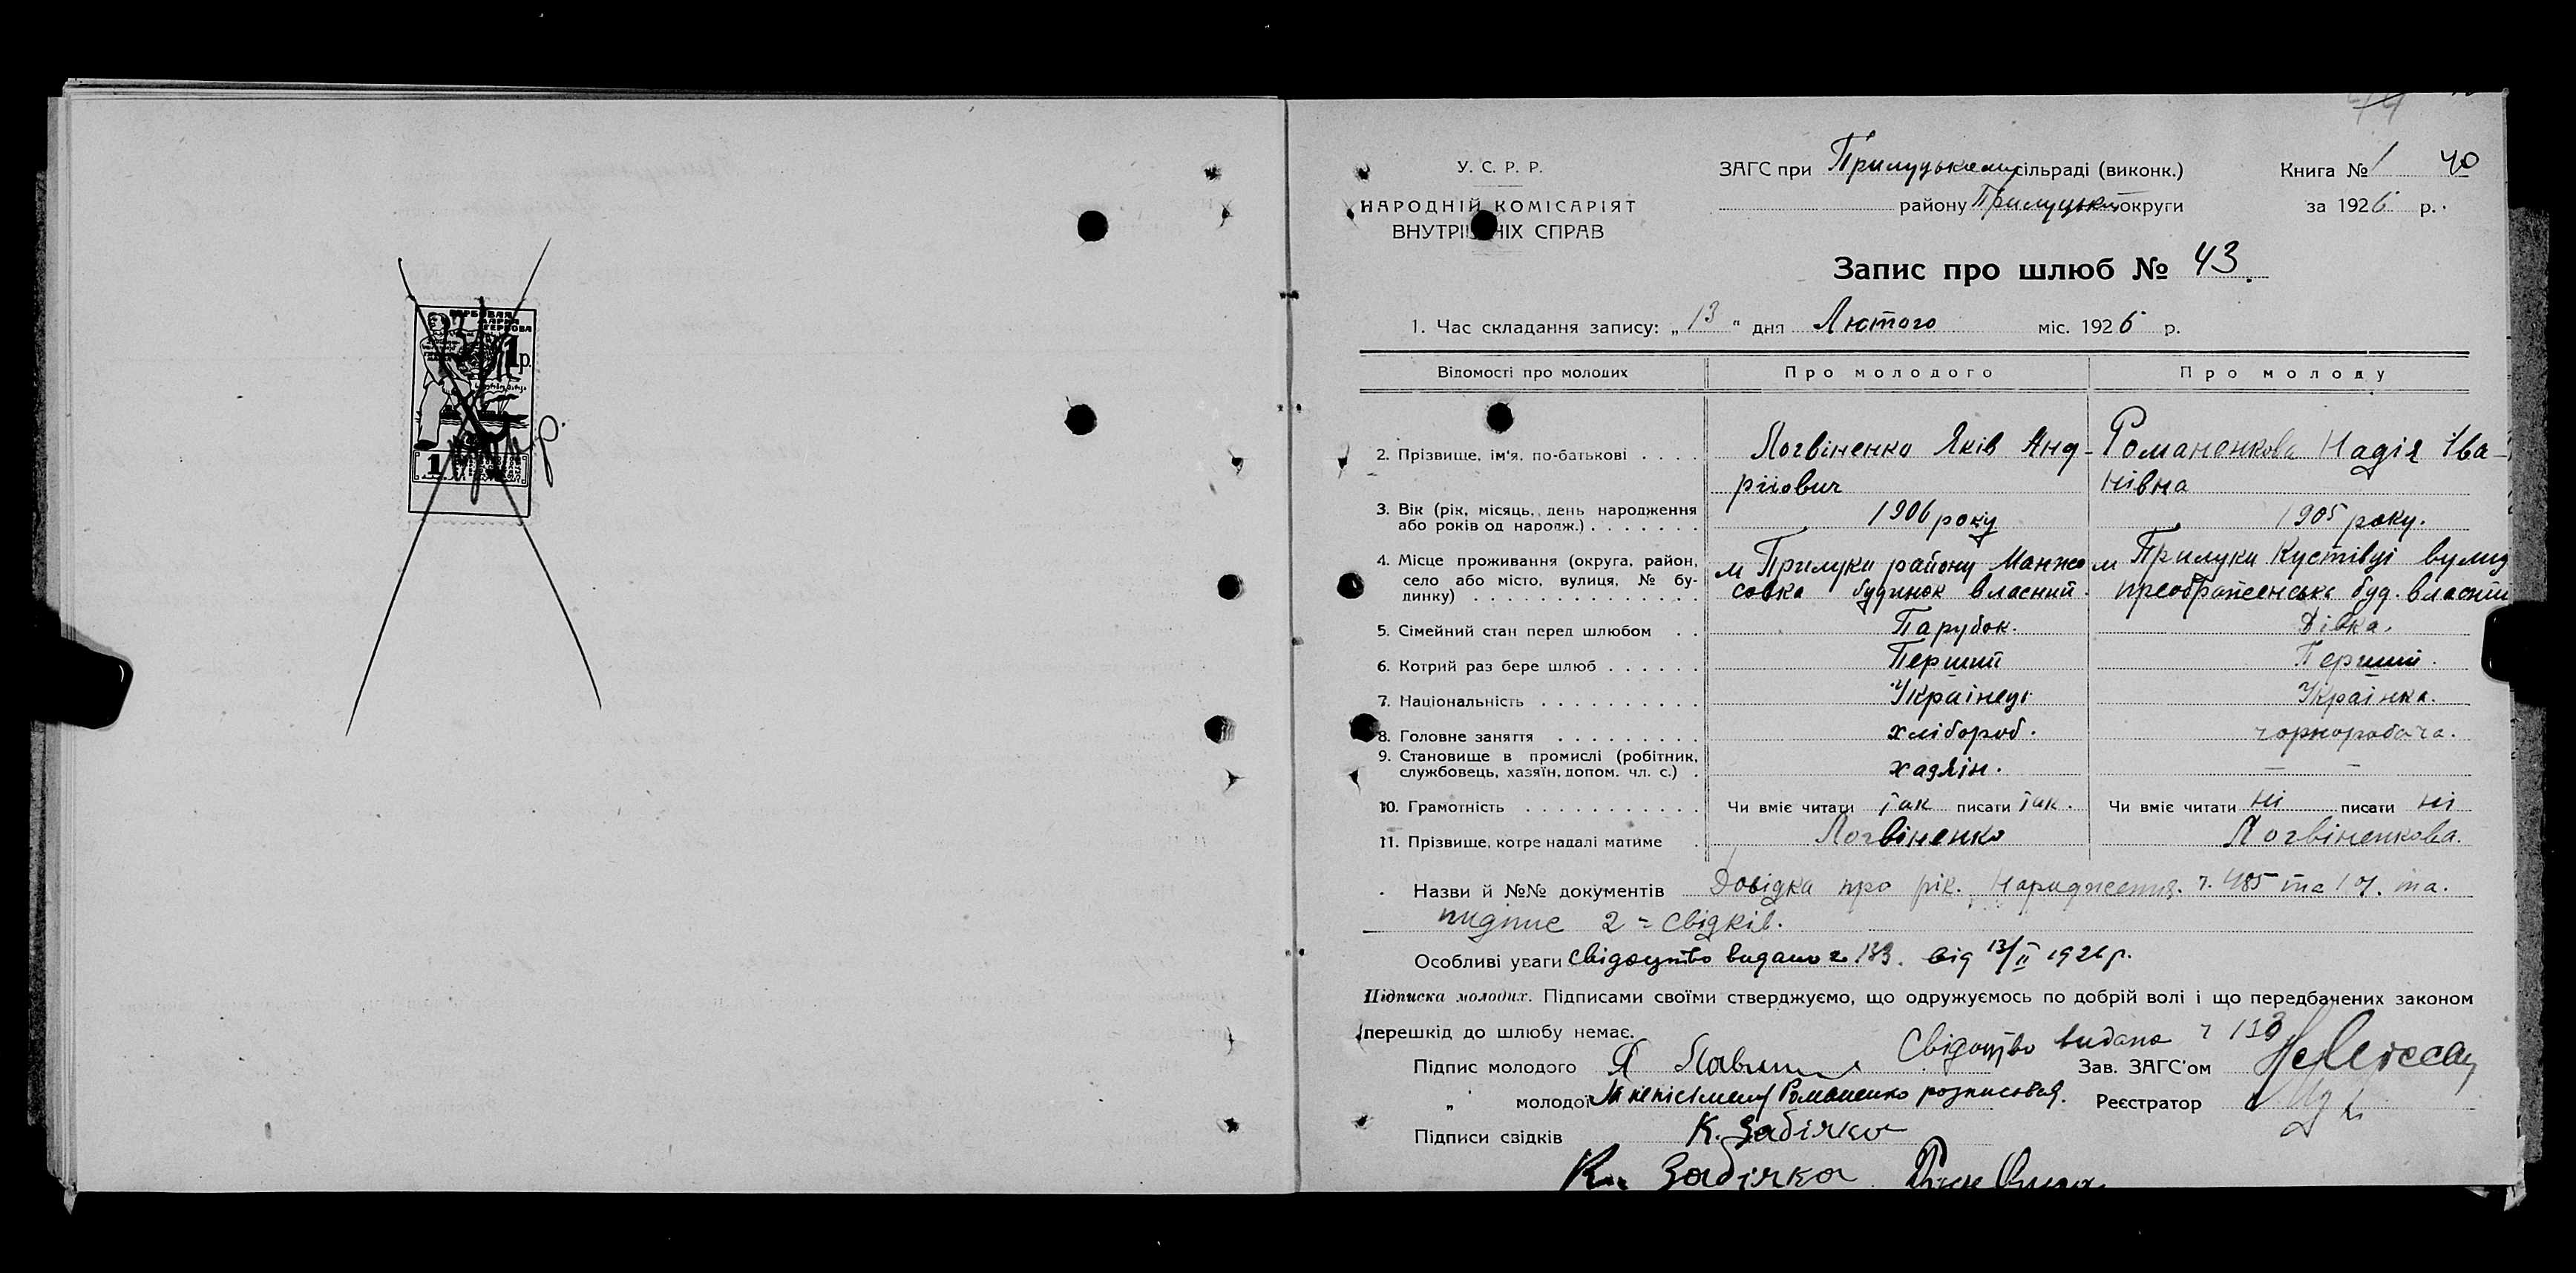 ГЕРБОВАЯ
МАРКА
ГЕРБОВА
1 р.
1
40
У. С. Р. Р.
НАРОДНІЙ КОМІСАРІЯТ
ВНУТРІШНІХ СПРАВ
ЗАГС при Прилуцькому сільраді (виконк.)
району Прилуцької округи
Книга № 1
за 1926 р.
Запис про шлюб № 43.
1. Час складання запису: „13" дня Лютого міс. 1926 р.
Відомості про молодих Про молодого Про молоду
2. Прізвище, ім'я, по-батькові . . . . Логвіненко Яків Анд- Романенкова Надія Іва-
рійович нівна
3. Вік (рік, місяць, день народження
або років од народж.) . . . . . . . 1906 року 1905 року.
4. Місце проживання (округа, район, м Прилуки району Манжо м Прилуки Кустівці вулиц
село або місто, вулиця, № бу- совка будинок власний. преображенська буд. власний
динку) . . . . . . . . . . . . . .
5. Сімейний стан перед шлюбом . . Парубок. Дівка.
6. Котрий раз бере шлюб . . . . . . Перший Перший.
7. Національність . . . . . . . . . . Українець Українка.
8. Головне заняття . . . . . . . . . хлібороб. чорноробоча.
9. Становище в промислі (робітник,
службовець, хазяїн, допом. чл. с.) . хазяїн. — —
10. Грамотність . . . . . . . . . . . Чи вміє читати так писати так. Чи вміє читати ні писати ні
11. Прізвище, котре надалі матиме . Логвіненко Логвіненкова.
Назви й №№ документів Довідка про рік. Народження. ч. 485 та та.
підпис 2 = свідків.
Особливі уваги Свідоцтво видано ч. 133. від 13/II 1926 р.
Підписка молодих. Підписами своїми стверджуємо, що одружуємось по добрій волі і що передбачених законом
перешкід до шлюбу немає.
Свідоцтво видано ч 133
Підпис молодого Я Зав. ЗАГС'ом
„ молодої Романенко розписовся. Реєстратор
Підписи свідків К. Забіяко
К. Забіяка